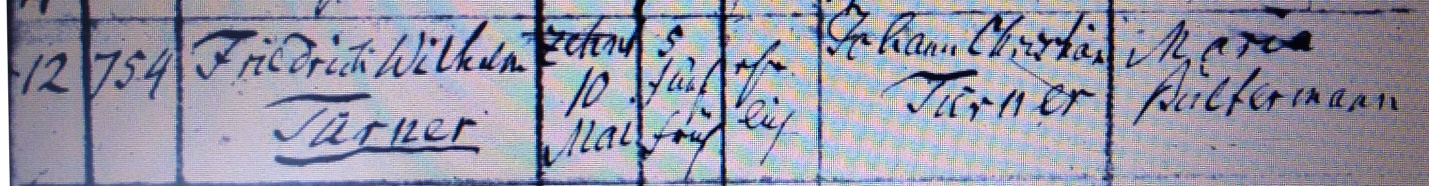 12
754
Friedrich Wilhelm
Turner
zehnt
10
Mai
5
fünf
früh
ehe
lich
Johann Christian
Turner
Maria